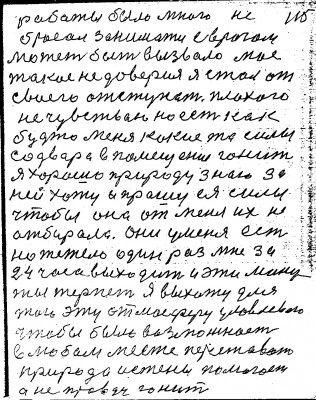 работы было много не 115
бросал занимати с врогом
может быт вызвало мое
такое не доверия я стал от
своего отступат. плохого
не чувствую но ест как
будто меня какие та силы
со двара в помещению гонит
я хорошо природу знаю за
ней хожу и прашу ся силы
чтобы она от меня их не
отбирала. они у меня ест
но тежело один раз мне за
24 часа выходит и эти мину
ты терпет я выхожу для
того эту атмосферу уловлевого
чтобы было возможност
в любом месте перстават
природа истены помогает
а не правду гонит